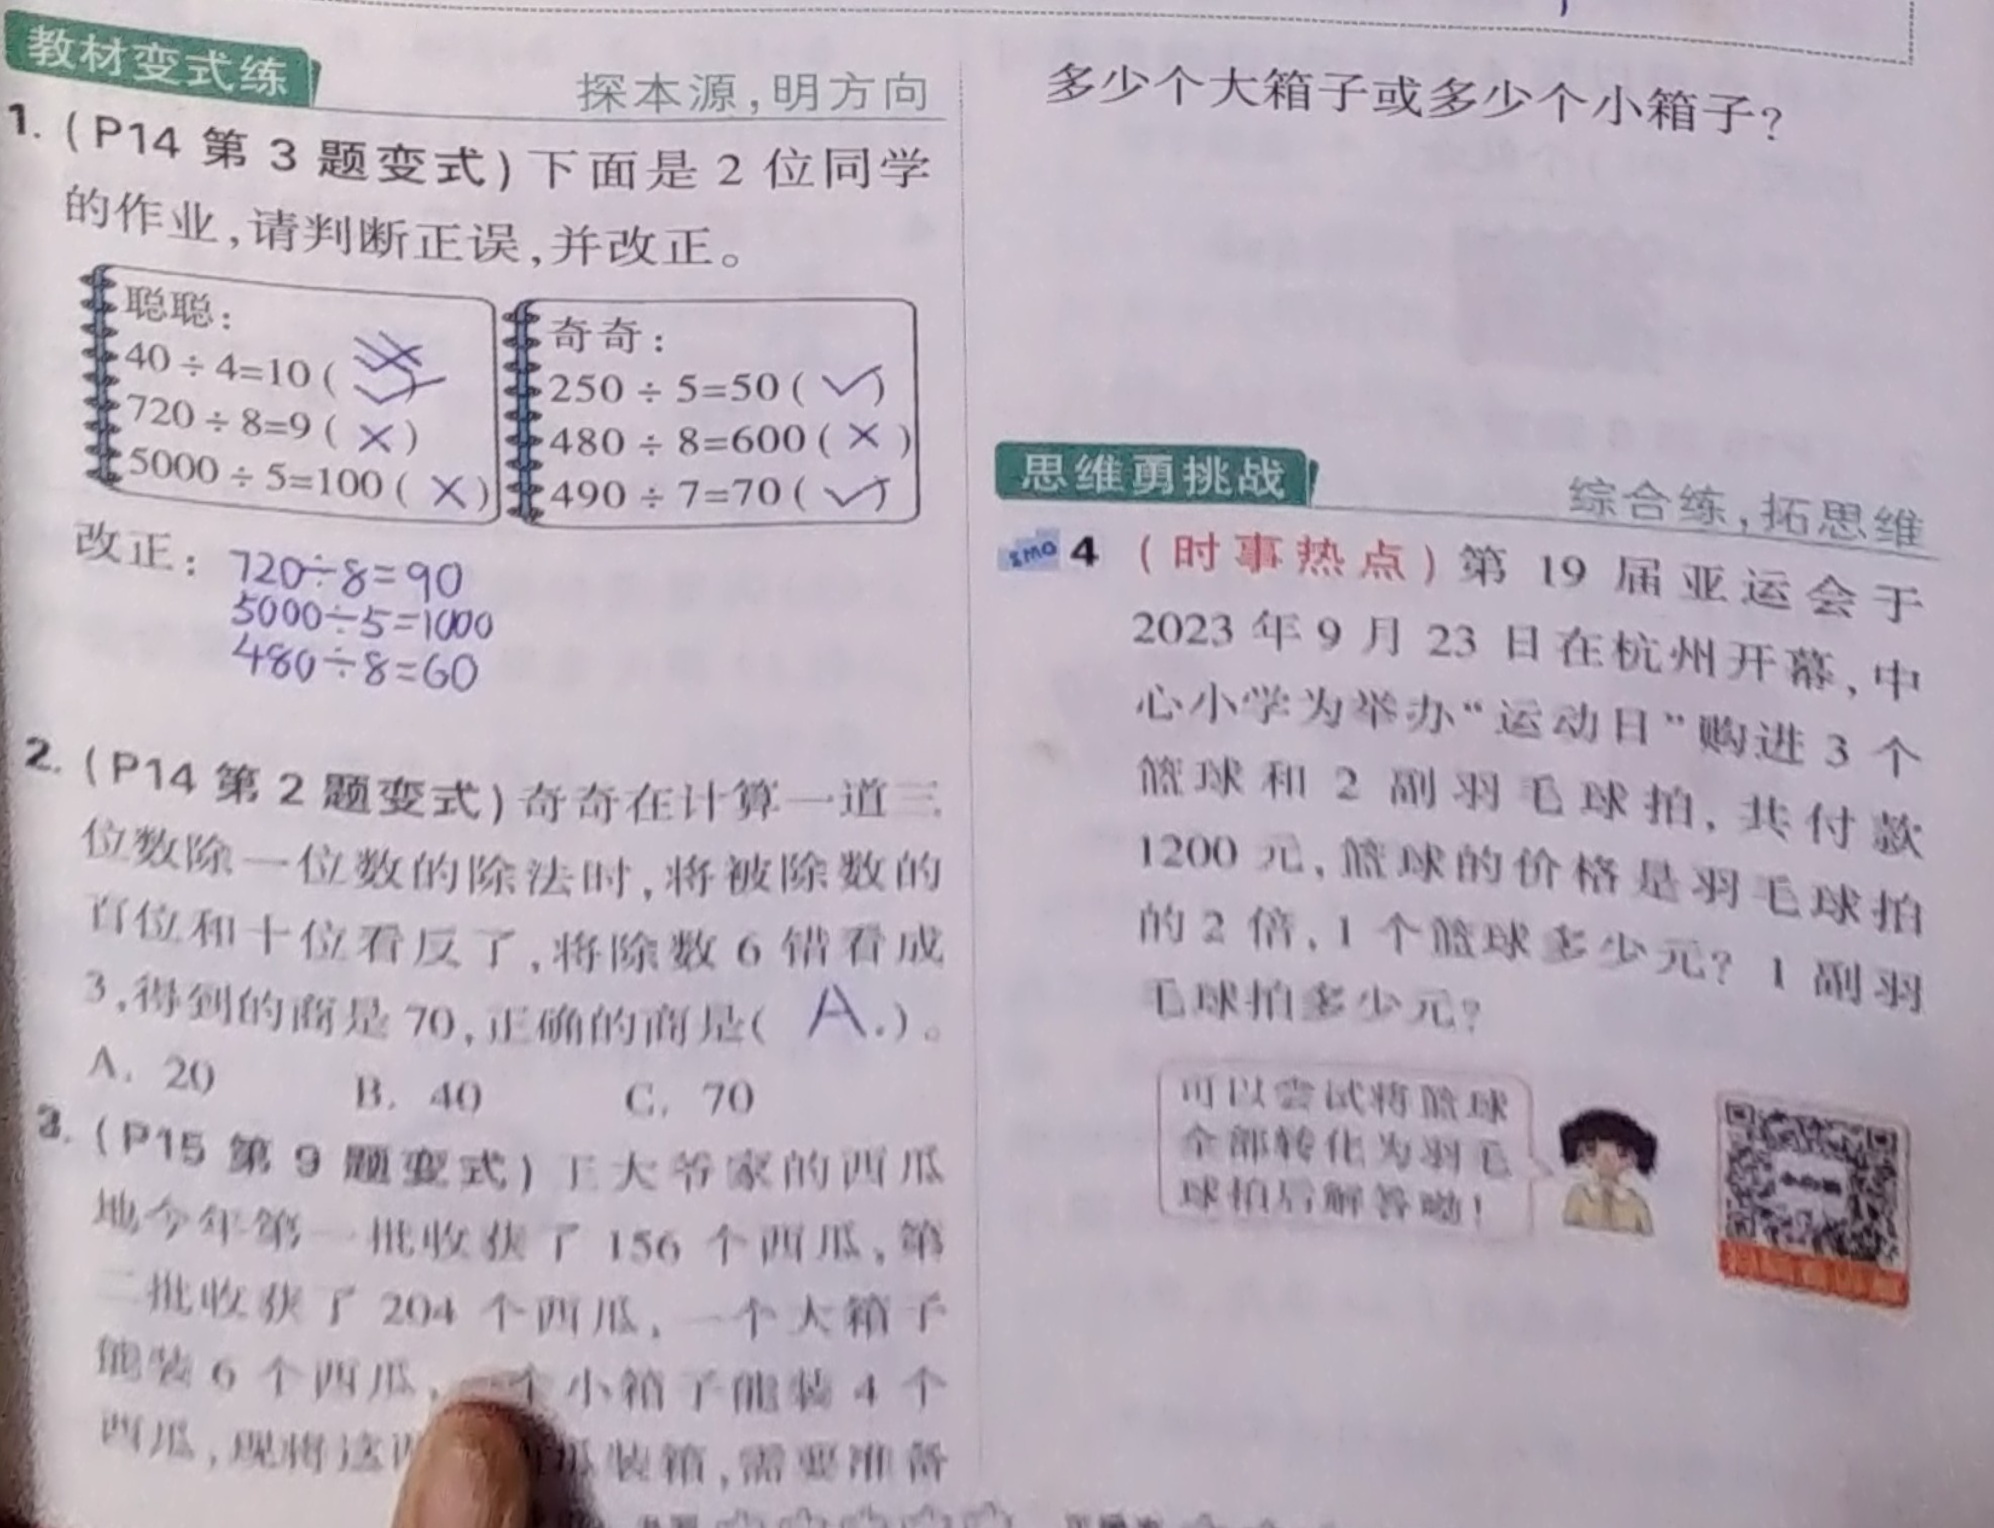 教材变式练
探本源,明方向
1. (P14 第 3 题变式)下面是 2 位同学
的作业,请判断正误,并改正。
聪聪:
40÷4=10( )
720÷8=9( × )
5000÷5=100( × )
奇奇:
250÷5=50( ✓ )
480÷8=600( × )
490÷7=70( ✓ )
改正: 720÷8=90
5000÷5=1000
480÷8=60
2. (P14 第 2 题变式)奇奇在计算一道三
位数除一位数的除法时,将被除数的
百位和十位看反了,将除数 6 错看成
3,得到的商是 70,正确的商是( A. )。
A. 20 B. 40 C. 70
3. (P15 第 9 题变式)王大爷家的西瓜
地今年第一批收获了 156 个西瓜,第
二批收获了 204 个西瓜,一个大箱子
能装 6 个西瓜,一个小箱子能装 4 个
西瓜,现将这 瓜装箱,需要准备
多少个大箱子或多少个小箱子?
思维勇挑战
综合练,拓思维
4 (时事热点)第 19 届亚运会于
2023 年 9 月 23 日在杭州开幕,中
心小学为举办“运动日”购进 3 个
篮球和 2 副羽毛球拍,共付款
1200 元,篮球的价格是羽毛球拍
的 2 倍,1 个篮球多少元? 1 副羽
毛球拍多少元?
可以尝试将篮球
全部转化为羽毛
球拍后解答呦!